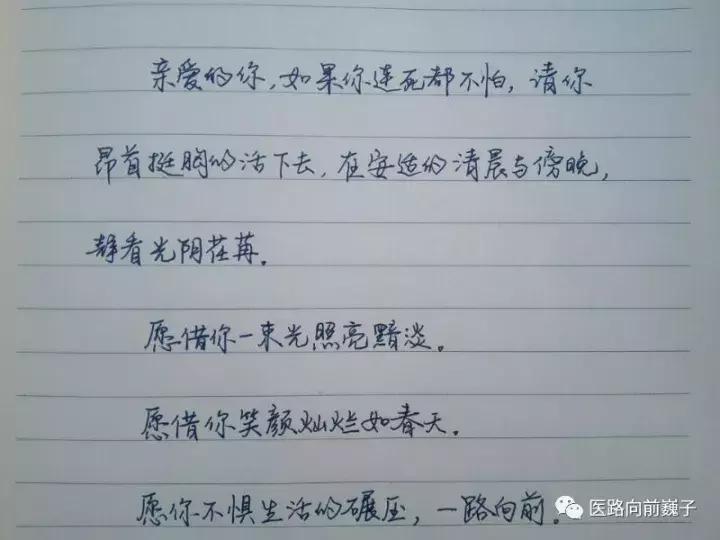 亲爱的你，如果你连死都不怕，请你
昂首挺胸的活下去，在安适的清晨与傍晚，
静看光阴荏苒。
愿借你一束光照亮黯淡。
愿借你笑颜灿烂如春天。
愿你不惧生活的碾压，一路向前。
医路向前巍子